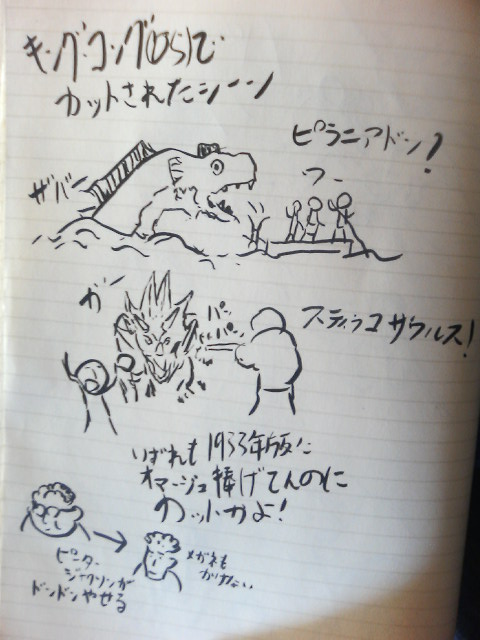 キング・コング(05)で
カットされたシーン
ピラニアドン!
つー
ザバー
ガー
パン
パン
スティラコサウルス!
いずれも1933年版に
オマージュ捧げてんのに
カットかよ!
ピーター
ジャクソンが
ドンドンやせる
メガネも
かけない